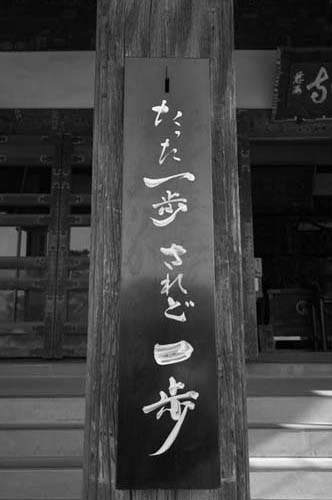 たった一歩されど一歩